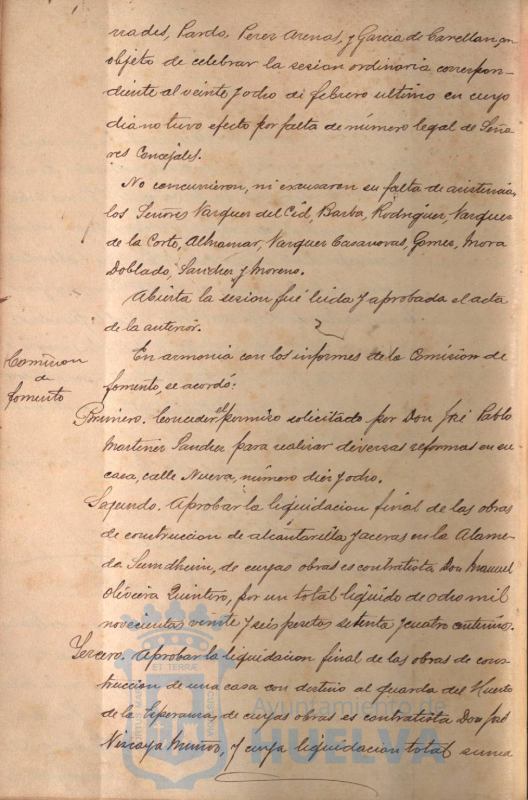 Pardo, Perez Arenas, y Garcia de Carellan, en
objeto de celebrar la sesion ordinaria correspon-
diente al veinte y ocho de febrero ultimo en cuyo
dia no tuvo efecto por falta de número legal de Seño-
res Concejales.
No concurrieron, ni excusaron su falta de asistencia,
los Señores Vazquez del Cid, Barba, Rodriguez, Vazquez
de la Corte, Albnamar, Vazquez Casanovas, Gomez, Mora
Doblado, Sanchez y Moreno.
Abierta la sesion fué leida y aprobada el acta
de la anterior.
Comision
de
fomento
En armonia con los informes de la Comision de
fomento, se acordó:
Primero. Conceder el permiso solicitado por Don José Pablo
Martinez Sanchez para realizar diversas reformas en su
casa, calle Nueva, número diez y ocho.
Segundo. Aprobar la liquidacion final de las obras
de construccion de alcantarilla y aceras en la Alame-
da Sundheim, de cuyas obras es contratista Don Manuel
Oliveira Quintero, por un total liquido de ocho mil
novecientas veinte y seis pesetas setenta y cuatro centimos.
Tercero. Aprobar la liquidacion final de las obras de cons-
truccion de una casa con destino al guarda del Huerto
de la Esperanza, de cuyas obras es contratista Don José
Vizcaya Muñoz, y cuya liquidacion total suma
Ayuntamiento de
HUELVA